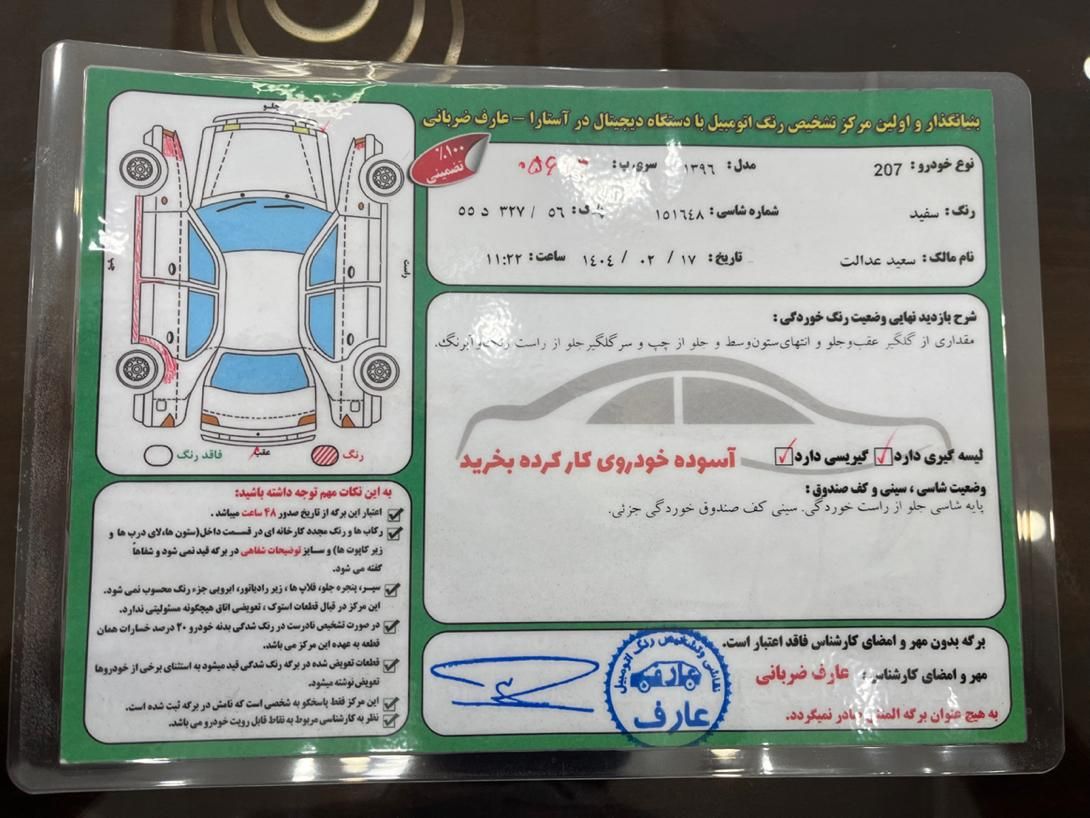 بنیانگذار و اولین مرکز تشخیص رنگ اتومبیل با دستگاه دیجیتال در آستارا - عارف ضربانی
%۱۰۰
تضمینی
نوع خودرو : 207 مدل : ۱۳۹۶
رنگ : سفید شماره شاسی : ۱۵۱۶۴۸ پلاک : ۵۶ / ۳۲۷ د ۵۵
نام مالک : سعید عدالت تاریخ : ۱۷ / ۰۲ / ۱۴۰۴ ساعت : ۱۱:۲۲
شرح بازدید نهایی وضعیت رنگ خوردگی :
مقداری از گلگیر عقب‌وجلو و انتهای‌ستون‌وسط و جلو از چپ و سرگلگیرجلو از راست
لیسه گیری دارد گیریسی دارد آسوده خودروی کار کرده بخرید
وضعیت شاسی ، سینی و کف صندوق :
پایه شاسی جلو از راست خوردگی. سینی کف صندوق خوردگی جزئی.
برگه بدون مهر و امضای کارشناس فاقد اعتبار است.
مهر و امضای کارشناس : عارف ضربانی
به هیچ عنوان برگه المثنی صادر نمیگردد.
نقاشی و تشخیص رنگ اتومبیل
عارف
عارف
جلو
راست
عقب
رنگ فاقد رنگ
به این نکات مهم توجه داشته باشید:
اعتبار این برگه از تاریخ صدور ۴۸ ساعت میباشد .
رکاب ها و رنگ مجدد کارخانه ای در قسمت داخل(ستون ها،لای درب ها و
زیر کاپوت ها) و سایز توضیحات شفاهی در برگه قید نمی شود و شفاهاً
گفته می شود.
سپر، پنجره جلو، قلاب ها ، زیر رادیاتور، ابرویی جزء رنگ محسوب نمی شود.
این مرکز در قبال قطعات استوک ، تعویضی اتاق هیچگونه مسئولیتی ندارد.
در صورت تشخیص نادرست در رنگ شدگی بدنه خودرو ۲۰ درصد خسارات همان
قطعه به عهده این مرکز می باشد.
قطعات تعویض شده در برگه رنگ شدگی قید میشود به استثنای برخی از خودروها
تعویض نوشته میشود.
این مرکز فقط پاسخگو به شخصی است که نامش در برگه ثبت شده است.
نظر به کارشناسی مربوط به نقاط قابل رویت خودرو می باشد.